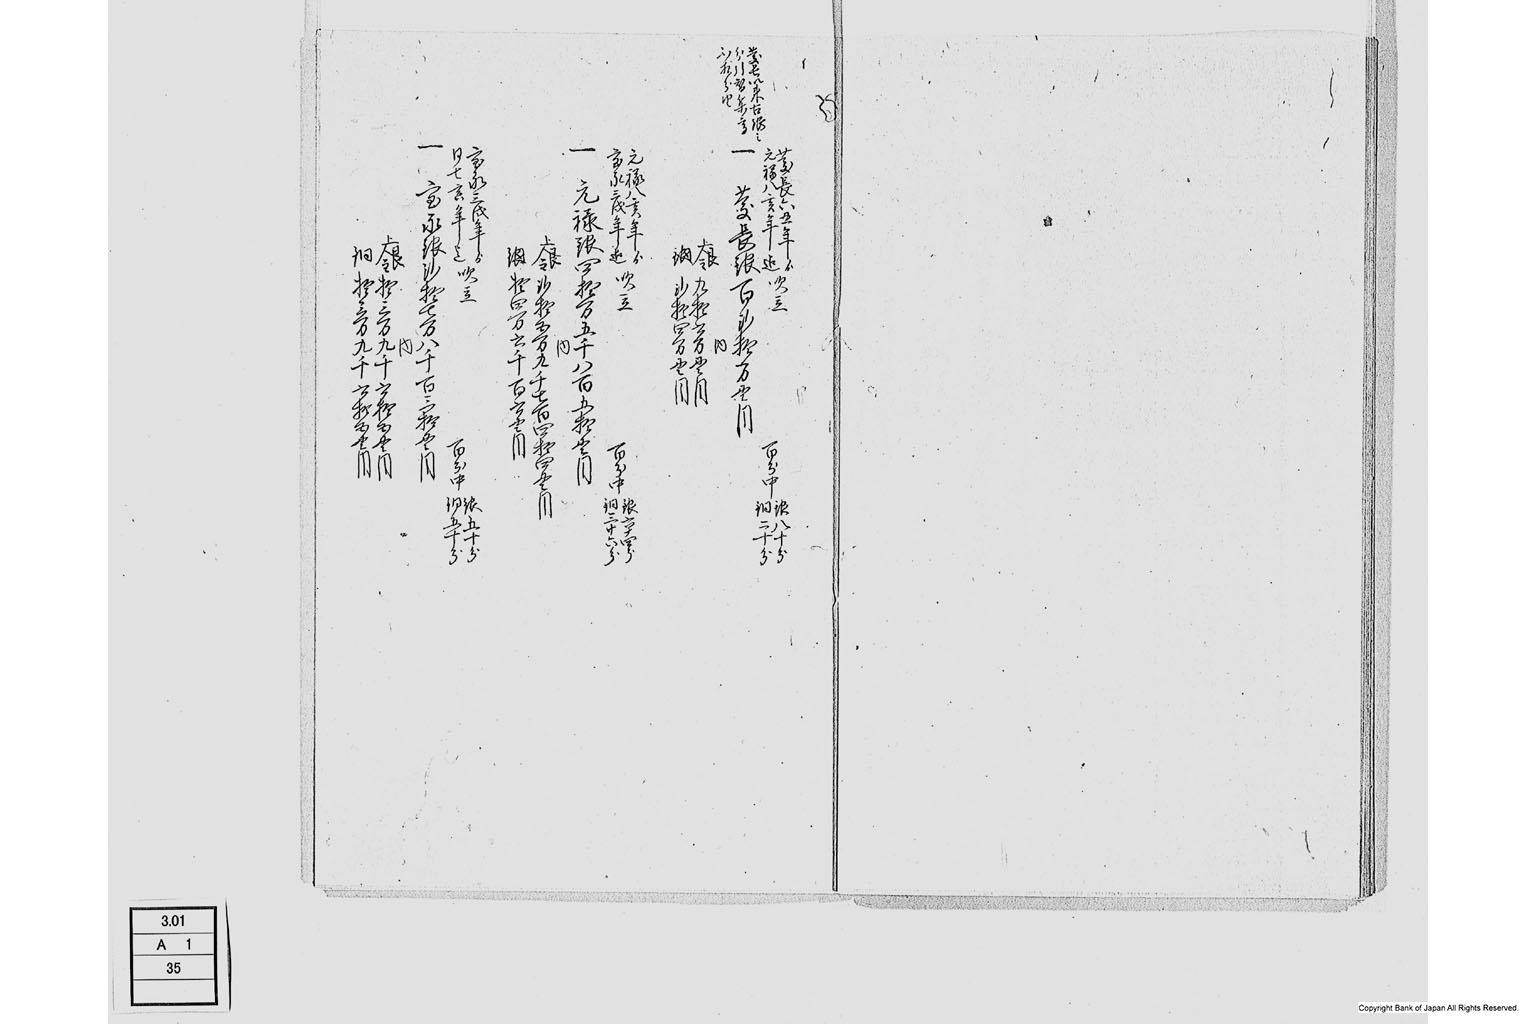 慶長六丑年ゟ
元禄八亥年迄 吹立
百分中 銀八十分
銅二十分
一 慶長銀百弐拾万貫目
内
上銀 九拾六万貫目
銅 弐拾四万貫目
元禄八亥年ゟ
宝永三戌年迄 吹立
百分中 銀六十四分
銅三十六分
一 元禄銀四拾万五千八百五拾貫目
内
上銀 弐拾五万九千七百四拾四貫目
銅 拾四万六千百六貫目
宝永三戌年ゟ
同七寅年迄 吹立
百分中 銀五十分
銅五十分
一 宝永銀弐拾七万八千百三拾貫目
内
上銀 拾三万九千六拾五貫目
銅 拾三万九千六拾五貫目
3.01
A 1
35
Copyright Bank of Japan All Rights Reserved.